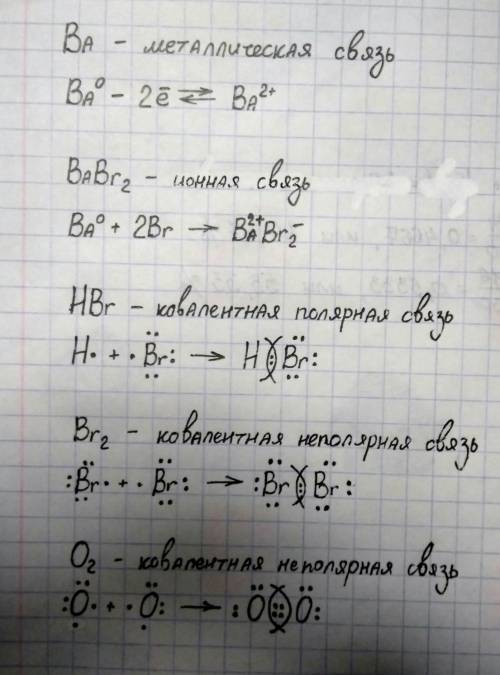 Ba - металлическая связь
Ba⁰ - 2ē ⇄ Ba²⁺
BaBr₂ - ионная связь
Ba⁰ + 2Br → Ba²⁺Br₂⁻
HBr - ковалентная полярная связь
H· + ·Br: → H(:)Br:
Br₂ - ковалентная неполярная связь
:Br· + ·Br: → :Br(:)Br:
O₂ - ковалентная неполярная связь
:O· + ·O: → :O(::)O: